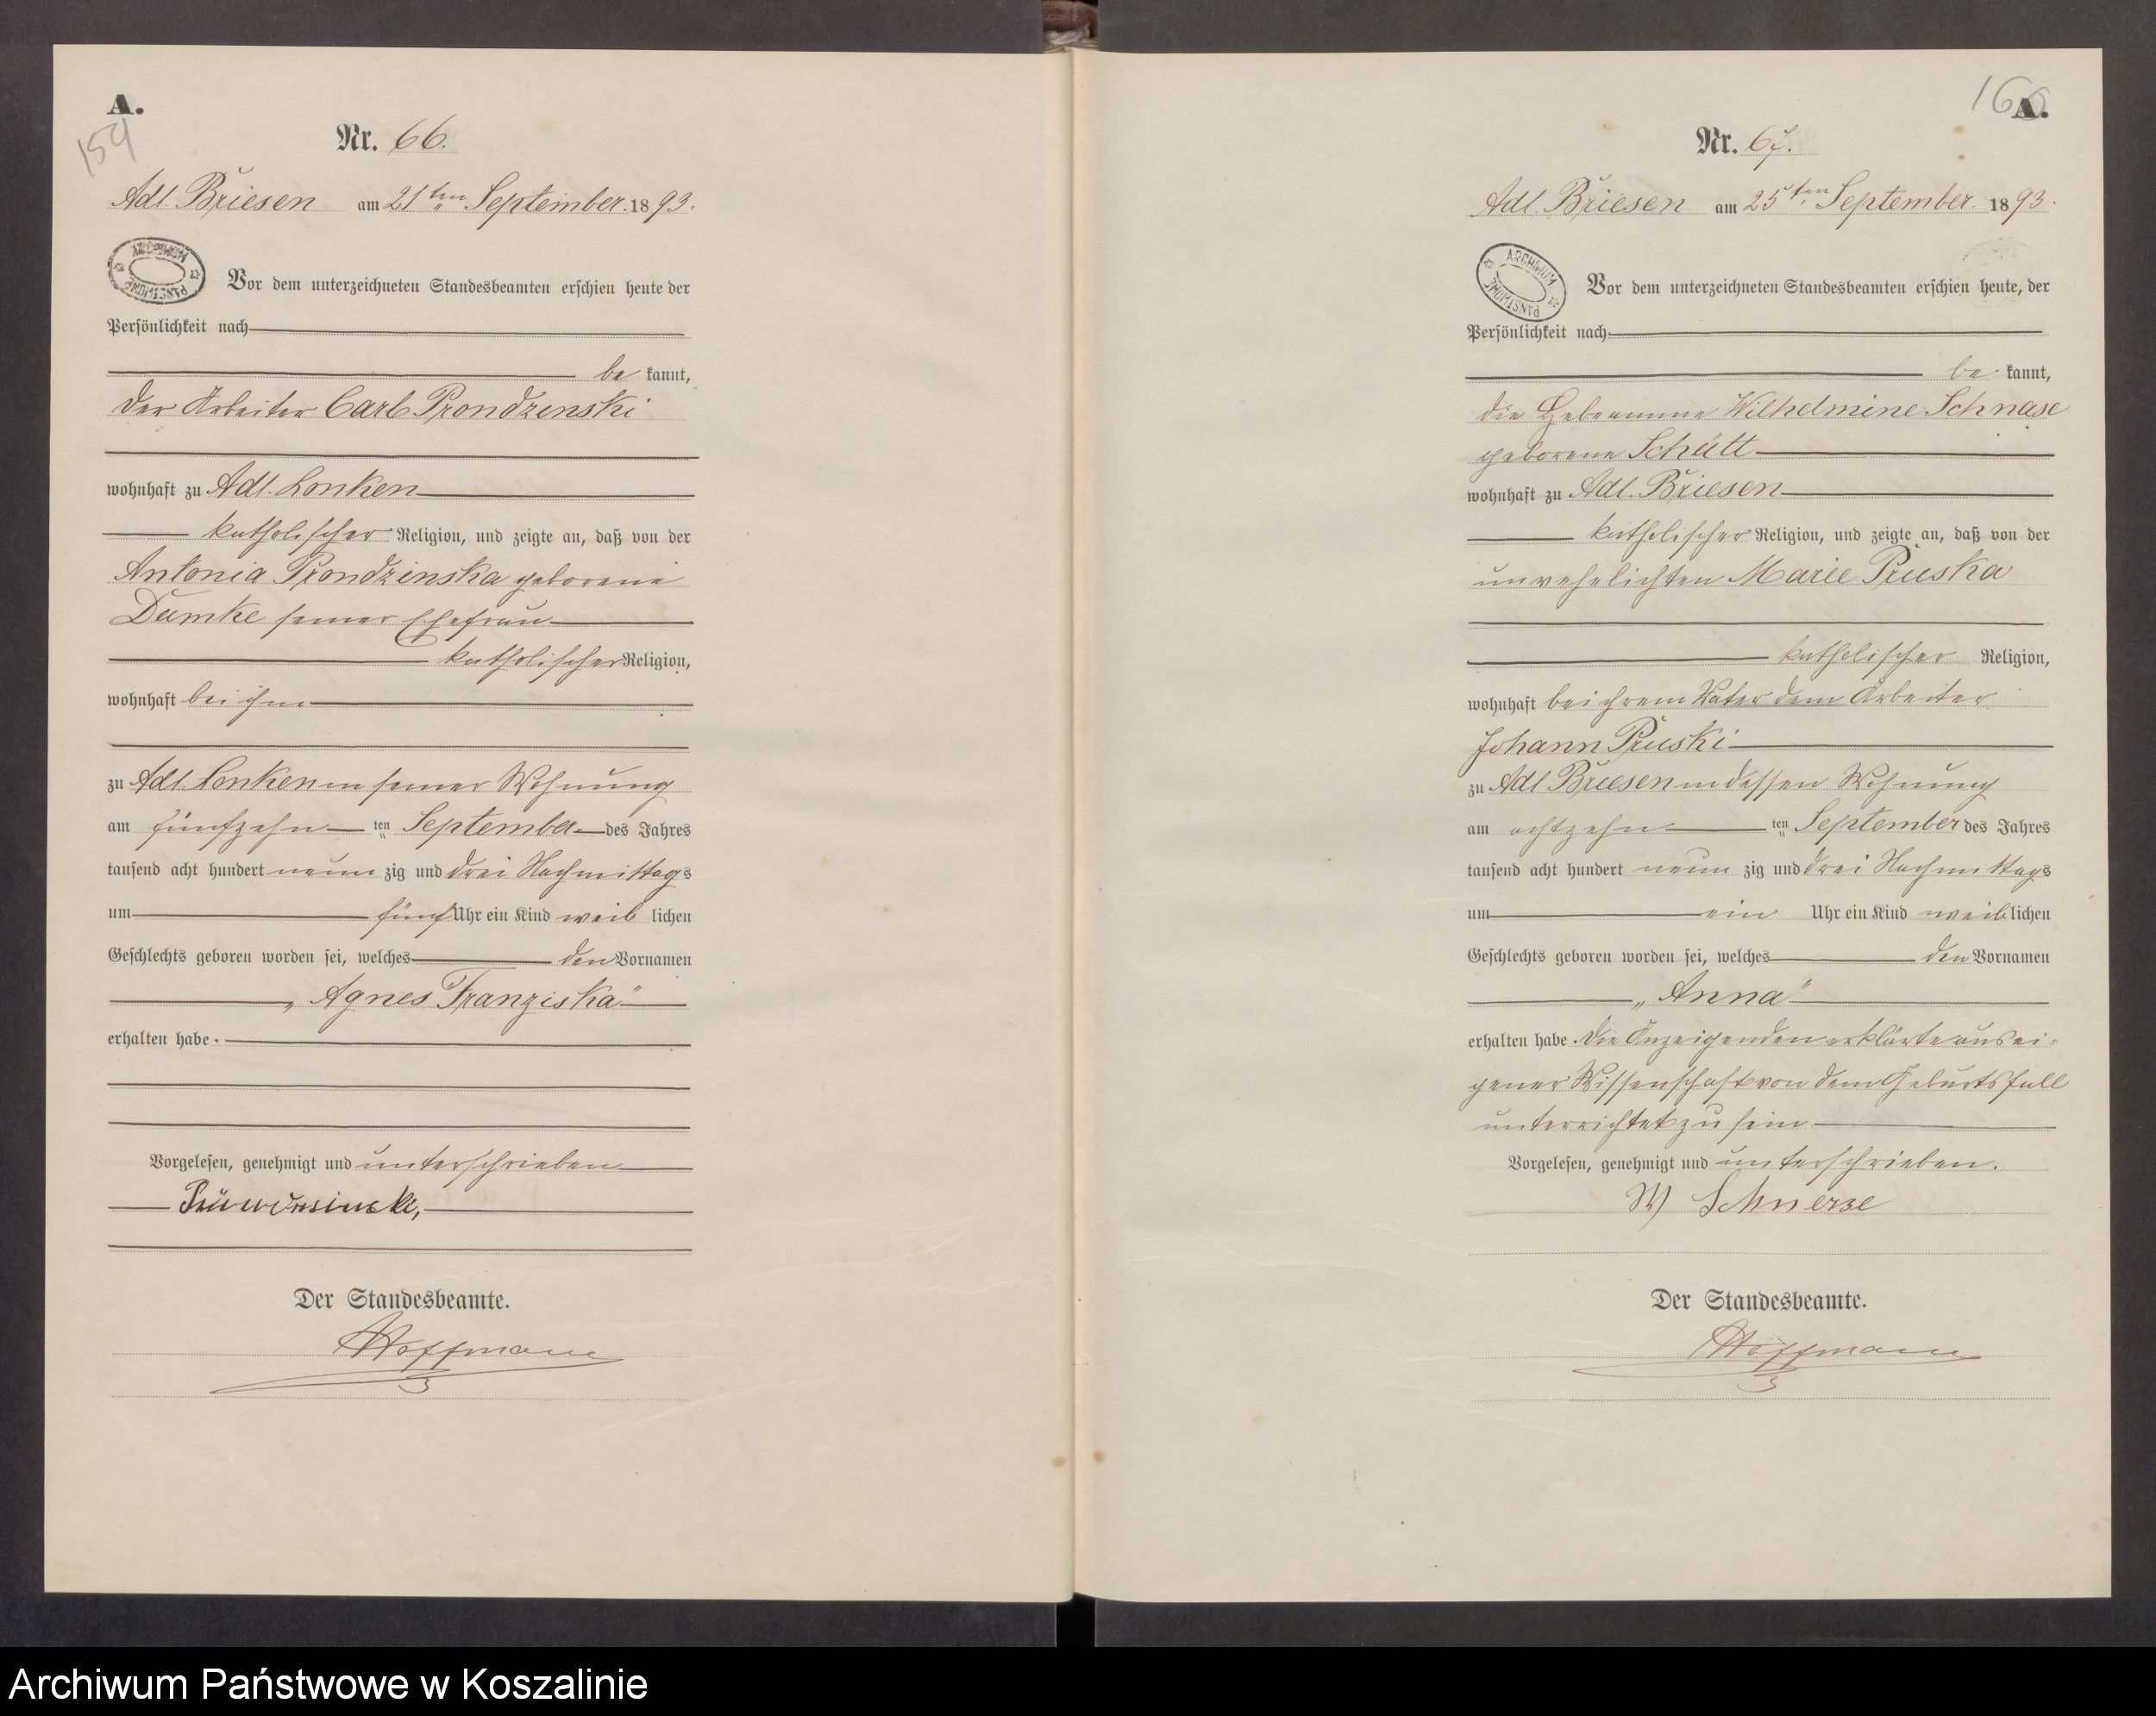 A.
159
Nr. 66.
Adl. Briesen am 21ten September. 1893.
ARCHIWUM PAŃSTWOWE
Vor dem unterzeichneten Standesbeamten erschien heute der
Persönlichkeit nach
be kannt,
der Arbeiter Carl Prondzenski
wohnhaft zu Adl. Lonken
katholischer Religion, und zeigte an, daß von der
Antonia Prondzinska geborene
Dumke seiner Ehefrau
katholischer Religion,
wohnhaft bei ihm
zu Adl. Lonken in seiner Wohnung
am fünfzehn ten September des Jahres
tausend acht hundert neun zig und drei Nachmittags
um fünf Uhr ein Kind weib lichen
Geschlechts geboren worden sei, welches den Vornamen
„Agnes Franziska"
erhalten habe.
Vorgelesen, genehmigt und unterschrieben
Der Standesbeamte.
Hoffmann
A.
160
Nr. 67.
Adl. Briesen am 25ten September 1893.
ARCHIWUM PAŃSTWOWE
Vor dem unterzeichneten Standesbeamten erschien heute, der
Persönlichkeit nach
be kannt,
die Hebeamme Wilhelmine Schnase
geborene Schütt
wohnhaft zu Adl. Briesen
katholischer Religion, und zeigte an, daß von der
unvehelichten Marie Pruska
katholischer Religion,
wohnhaft bei ihrem Vater dem Arbeiter
Johann Pruski
zu Adl Briesen in dessen Wohnung
am achtzehn ten September des Jahres
tausend acht hundert neun zig und drei Nachmittags
um ein Uhr ein Kind weib lichen
Geschlechts geboren worden sei, welches den Vornamen
„Anna"
erhalten habe. Die Anzeigenden erklärte aus ei=
gener Wissenschaft von dem Geburtsfall
unterrichtet zu sein
Vorgelesen, genehmigt und unterschrieben.
W Schnerse
Der Standesbeamte.
Hoffmann
Archiwum Państwowe w Koszalinie